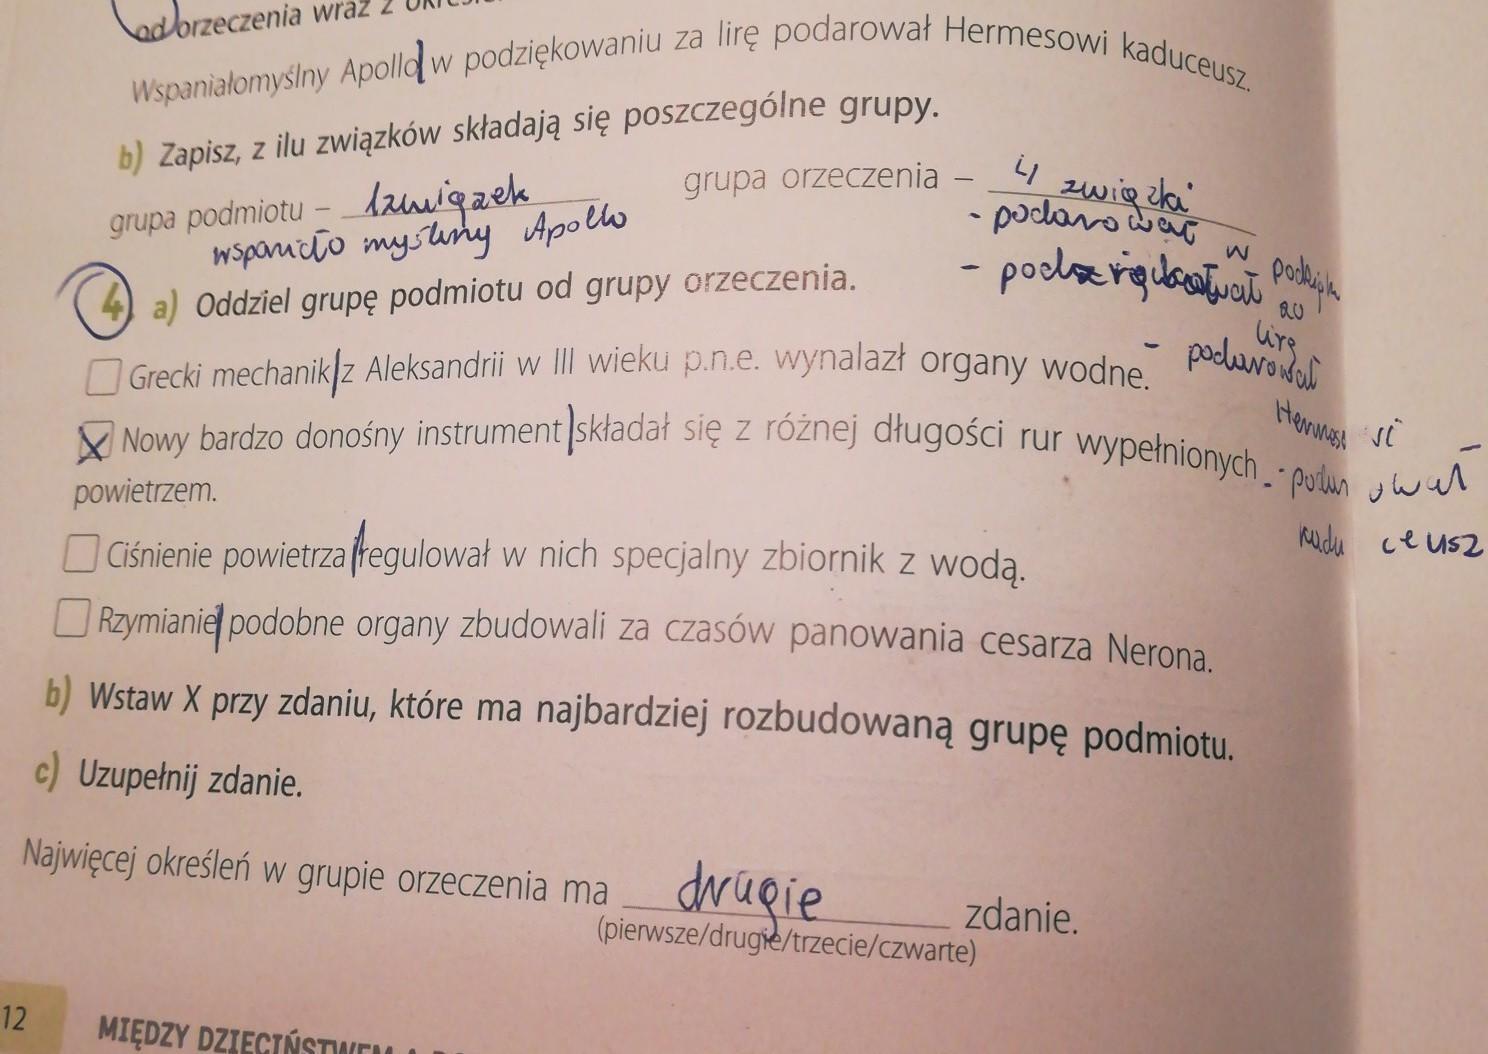 od orzeczenia wraz z
Wspaniałomyślny Apollo w podziękowaniu za lirę podarował Hermesowi kaduceusz.
b) Zapisz, z ilu związków składają się poszczególne grupy.
grupa podmiotu – 1 związek
grupa orzeczenia – 4 związki
wspaniało myślny Apollo
- podarował w
-
za
lirę
- podarował
- podarował
kadu ceusz
4 a) Oddziel grupę podmiotu od grupy orzeczenia.
Grecki mechanik z Aleksandrii w III wieku p.n.e. wynalazł organy wodne.
X Nowy bardzo donośny instrument składał się z różnej długości rur wypełnionych
powietrzem.
Ciśnienie powietrza regulował w nich specjalny zbiornik z wodą.
Rzymianie podobne organy zbudowali za czasów panowania cesarza Nerona.
b) Wstaw X przy zdaniu, które ma najbardziej rozbudowaną grupę podmiotu.
c) Uzupełnij zdanie.
Najwięcej określeń w grupie orzeczenia ma drugie zdanie.
(pierwsze/drugie/trzecie/czwarte)
12
MIĘDZY DZIECIŃSTWEM A